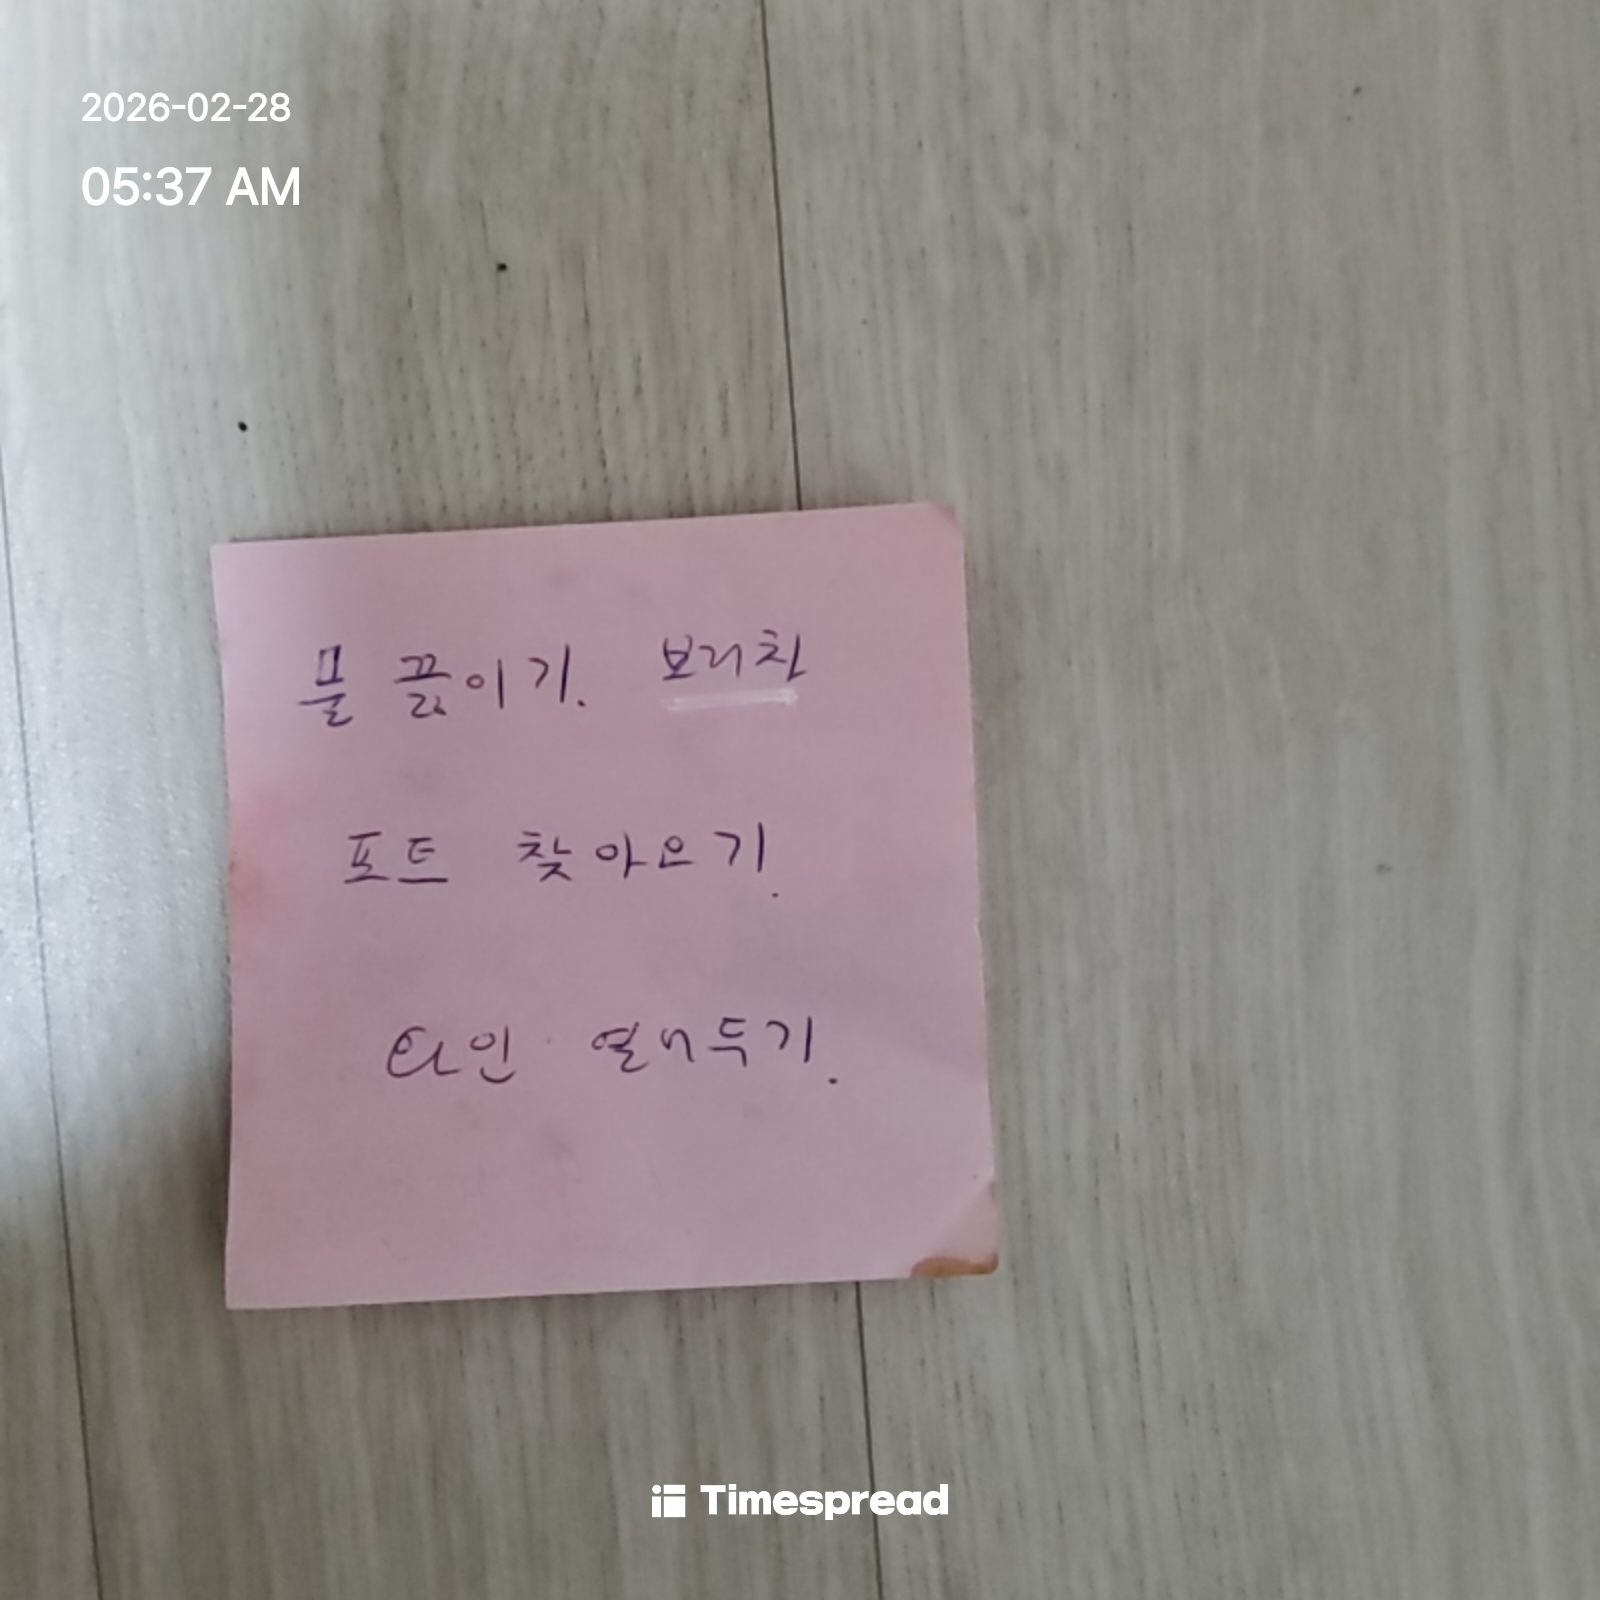 2026-02-28
05:37 AM
물 끓이기. 보리차
포트 찾아오기.
타인 열어두기.
Timespread